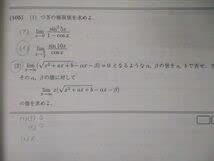 (105) (1) つぎの極限値を求めよ.
(ア) lim x→0 sin² 5x / 1 − cos x
(イ) lim sin 10x / cos x
(2) lim (√x² + ax + b − αx − β) = 0 となるような α, β の値を a, b で表せ.
その α, β の値に対して
lim x(√x² + ax + b − αx − β)
の値を求めよ.